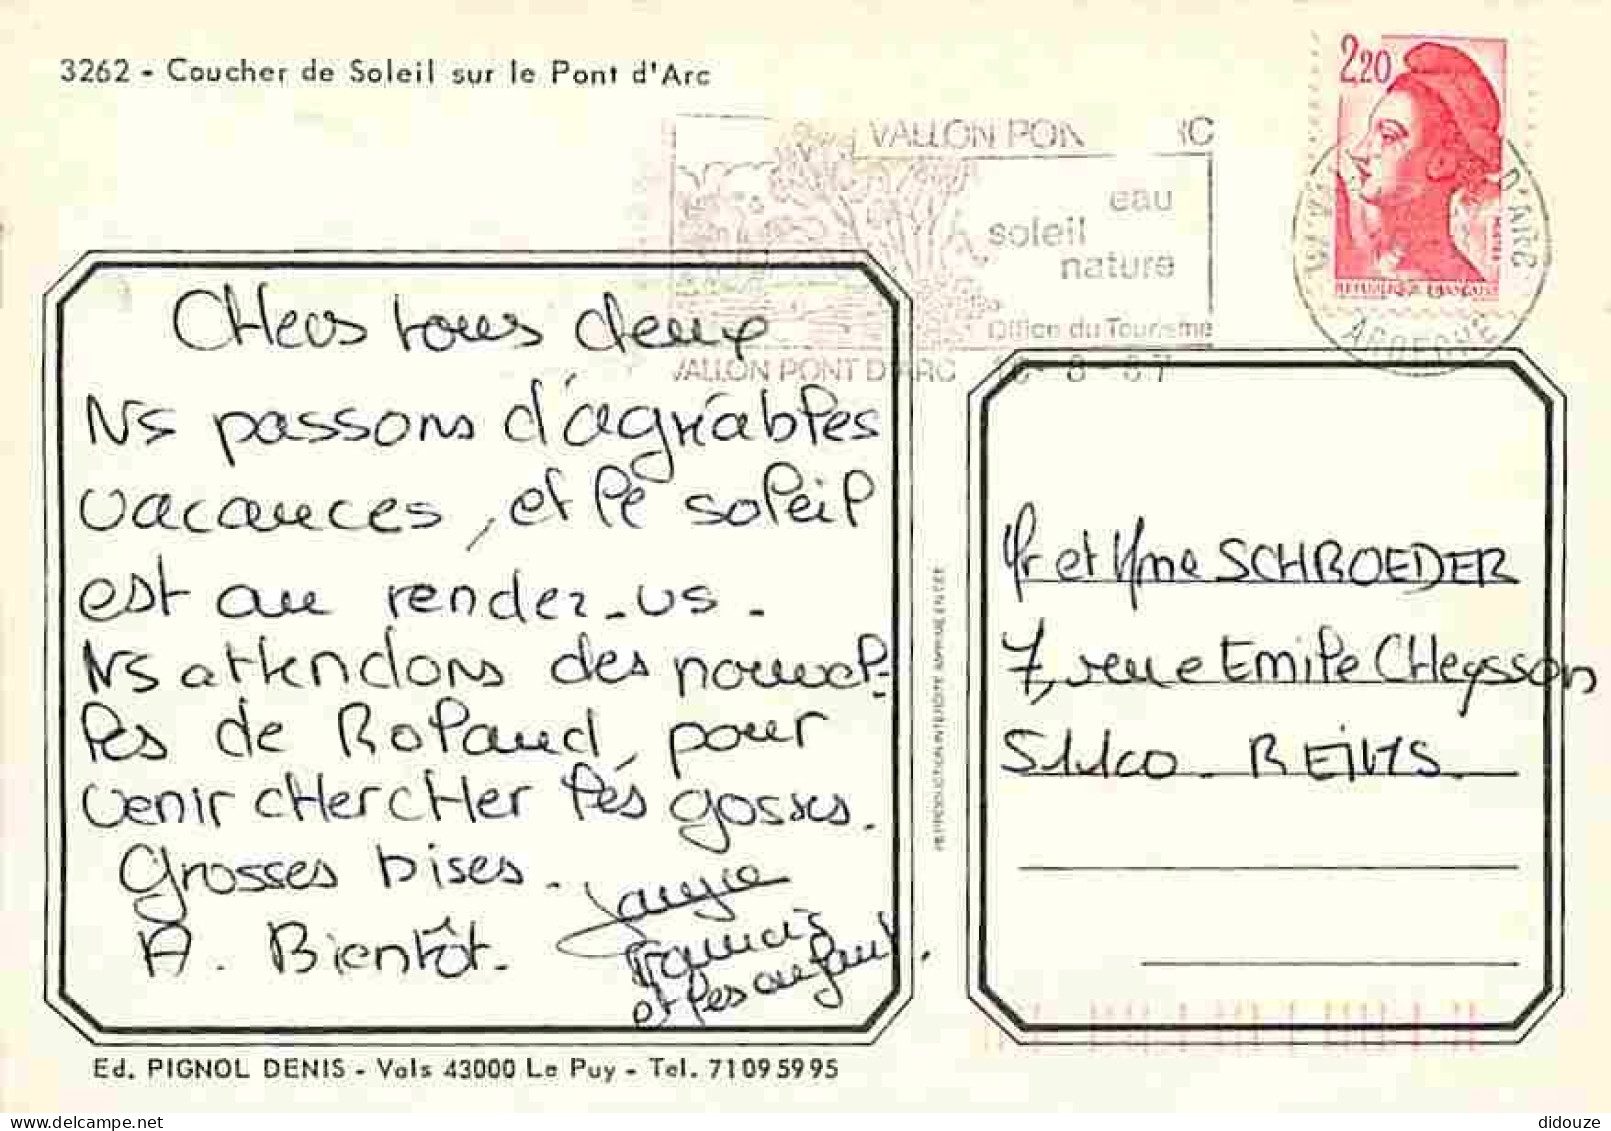 3262 - Coucher de Soleil sur le Pont d'Arc
2,20
REPUBLIQUE FRANÇAISE
VALLON PON RC
eau
soleil
nature
Office du Tourisme
VALLON PONT D'ARC 8 - 87
D'ARC
ARDECHE
CHers tous deux
Ns passons d'agréables
vacances, et le soleil
est au rendez-vs.
Ns attendons des nouvel-
les de Roland, pour
venir cHercHer les gosses.
Grosses bises.
A. Bientôt.
Francis
et les enfants.
Mr et Mme SCHROEDER
7, rue Emile CHeysson
51100 - REIMS
REPRODUCTION INTERDITE
Ed. PIGNOL DENIS - Vals 43000 Le Puy - Tel. 71095995
didouze